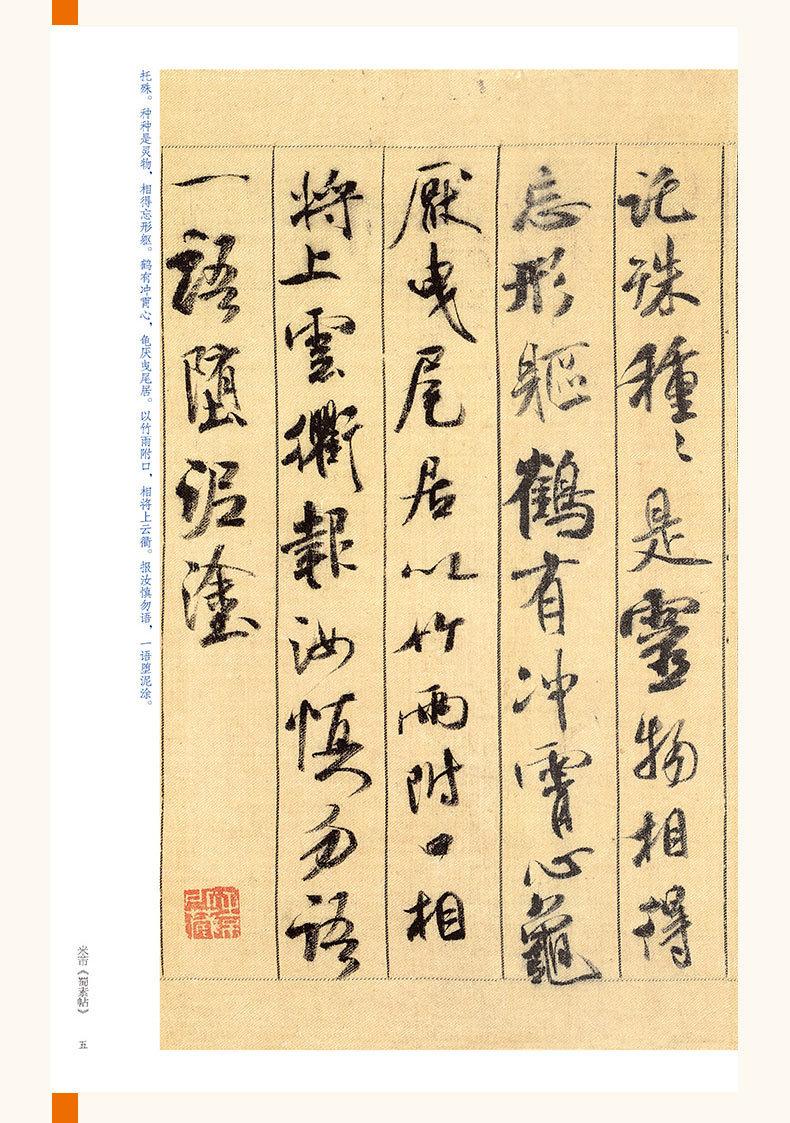 託殊種〻是靈物相得
忘形軀鶴有冲霄心龜
厭曳尾居以竹兩附口相
將上雲衢報汝慎勿語
一語墮泥塗
托殊。种种是灵物，相得忘形躯。鹤有冲霄心，龟厌曳尾居。以竹雨附口，相将上云衢。报汝慎勿语，一语堕泥涂。
米芾《蜀素帖》
五